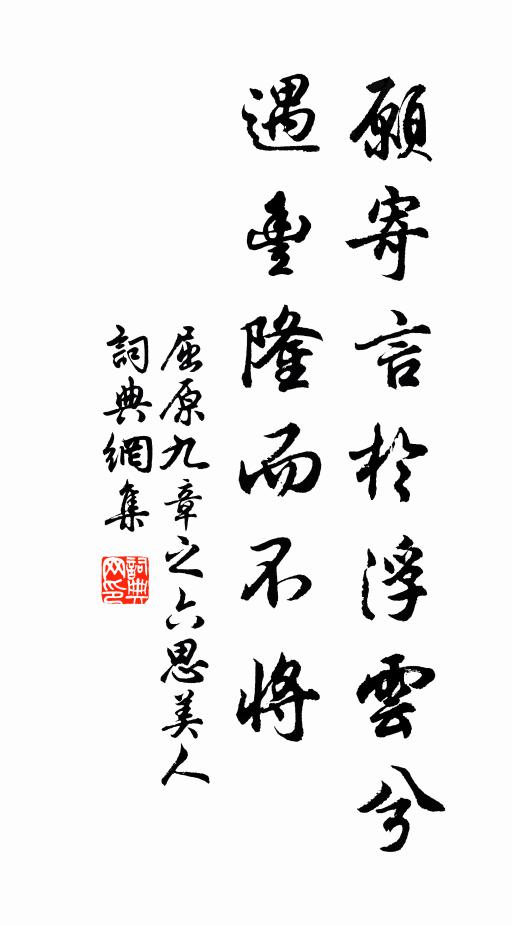 願寄言於浮雲兮
遇豐隆而不將
屈原九章之六思美人
詞典網集
詞典
网印